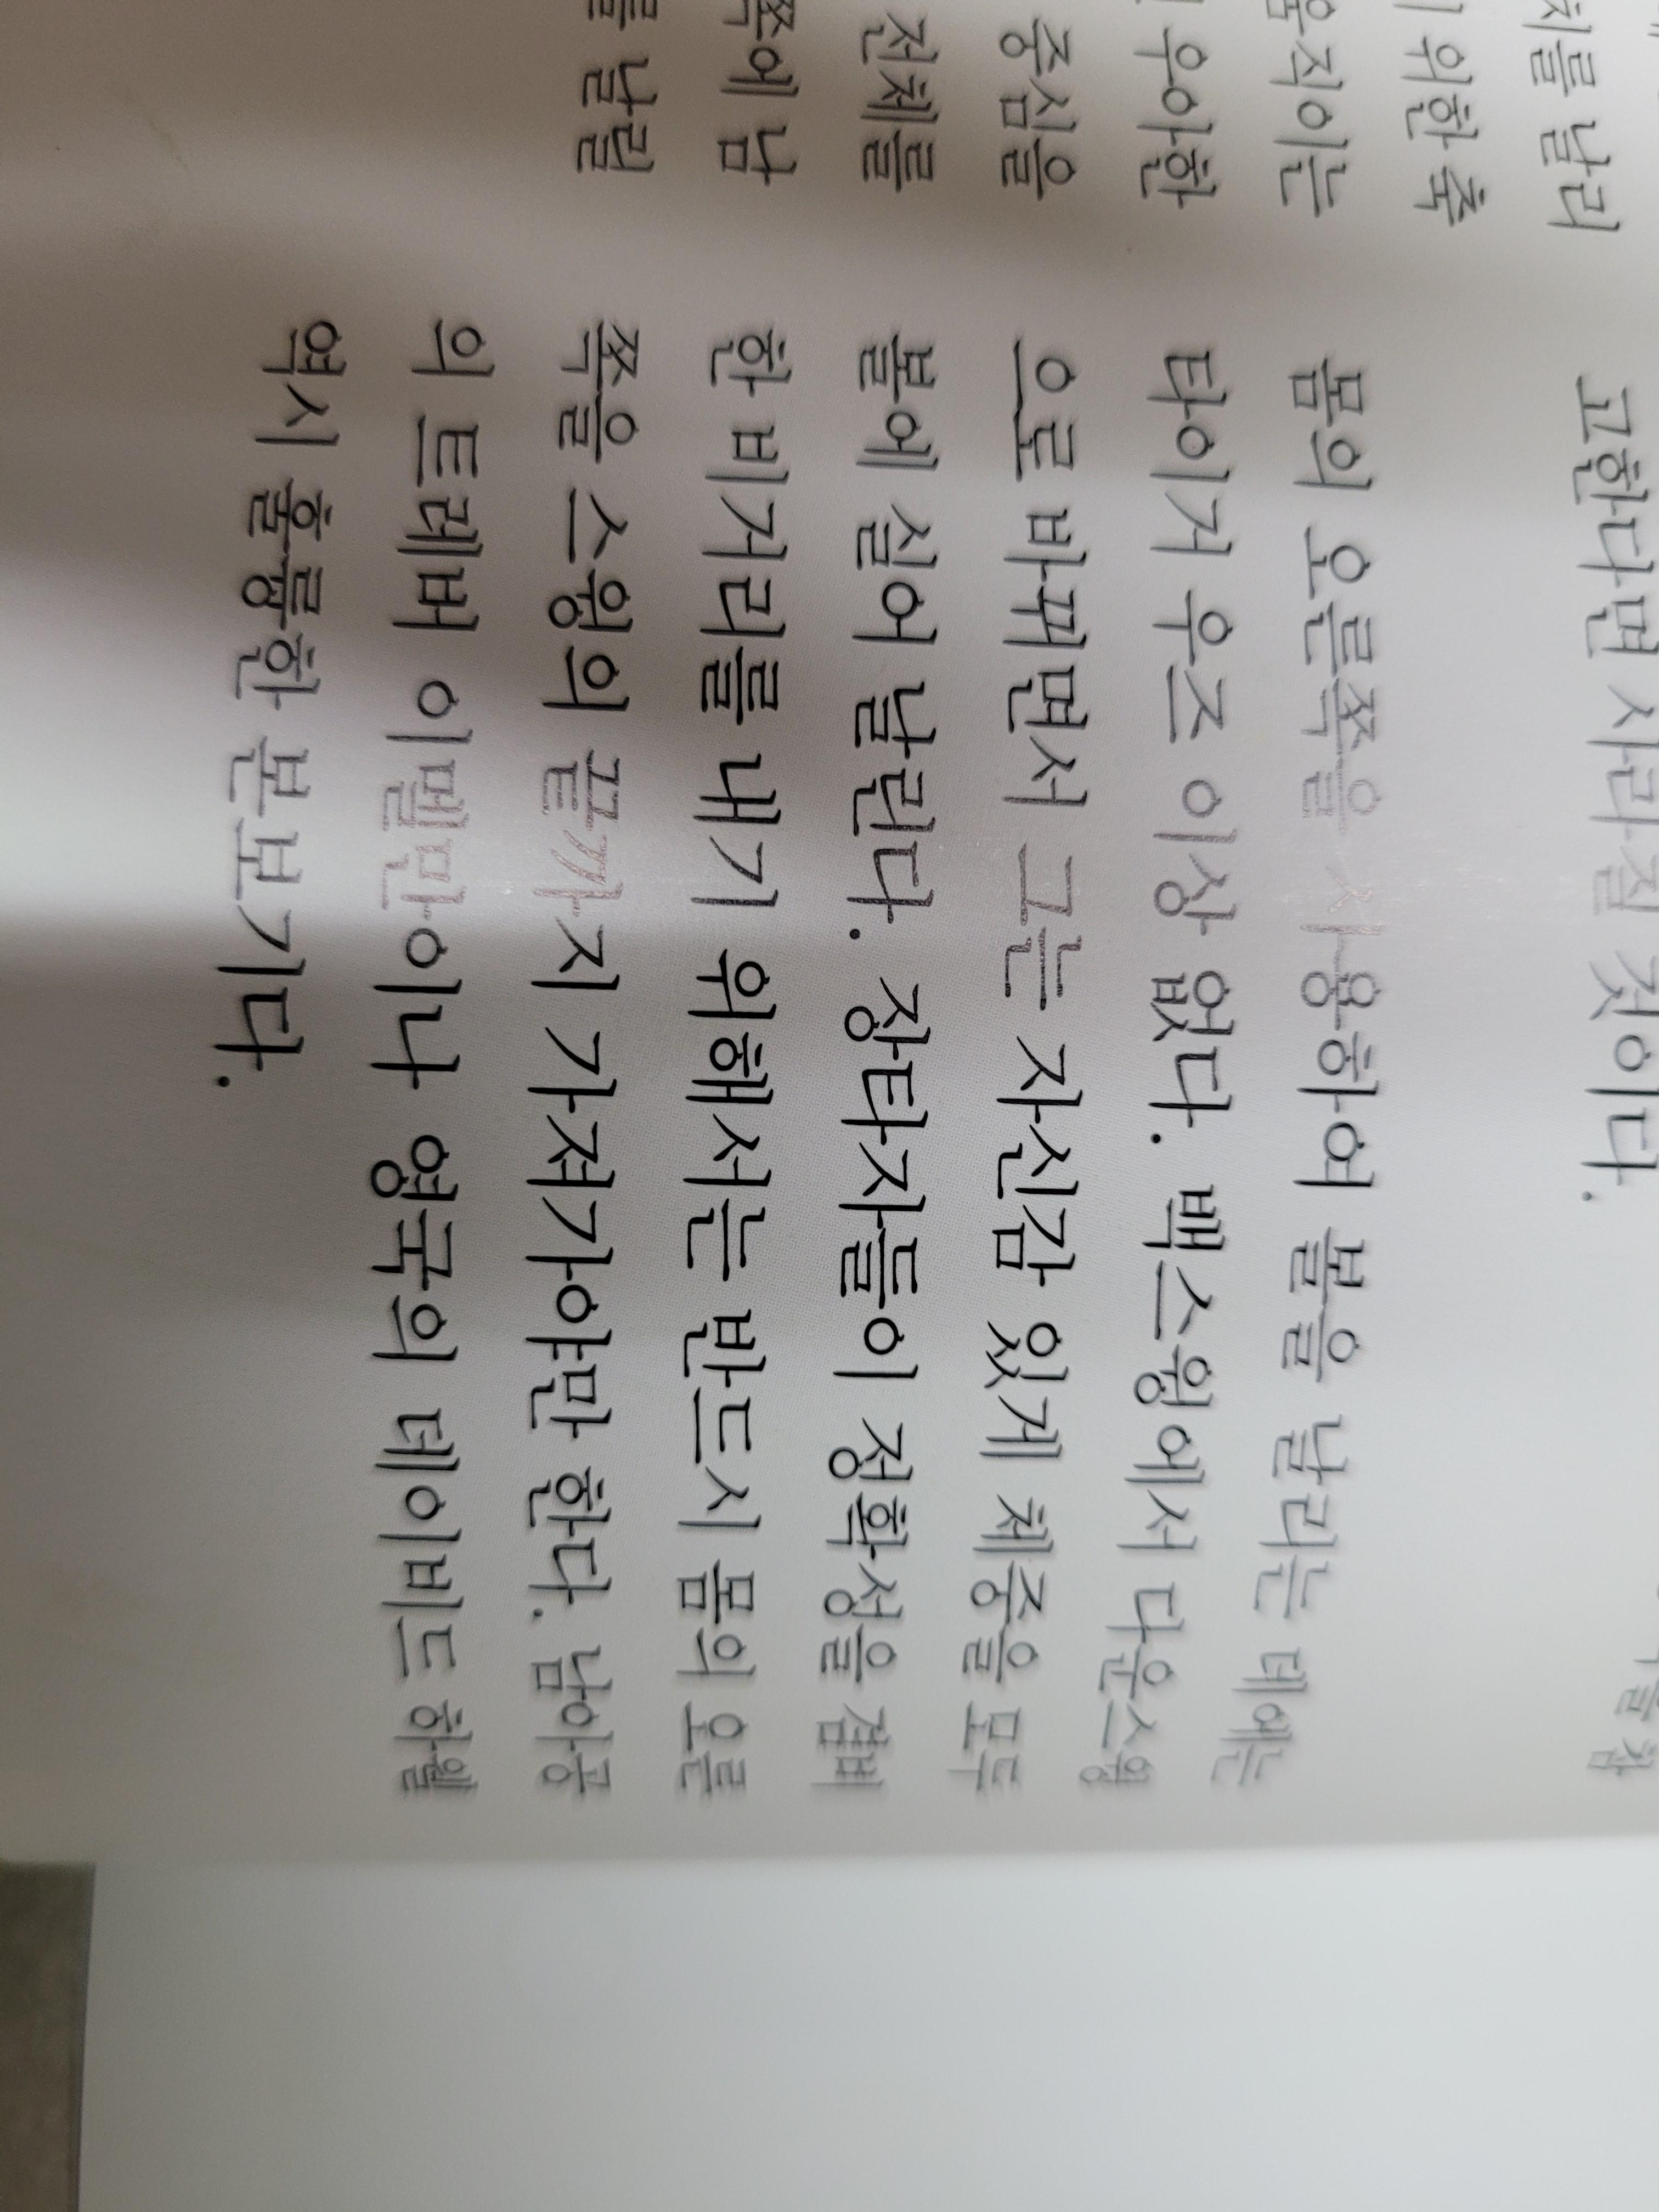 날리
위한 축
움직이는
우아한
중심을
전체를
쪽에 남
를 날릴
고한다면 사라질 것이다.
몸의 오른쪽을 사용하여 볼을 날리는 데에는
타이거 우즈 이상 없다. 백스윙에서 다운스윙
으로 바뀌면서 그는 자신감 있게 체중을 모두
볼에 실어 날린다. 장타자들이 정확성을 겸비
한 비거리를 내기 위해서는 반드시 몸의 오른
쪽을 스윙의 끝까지 가져가야만 한다. 남아공
의 트레버 이멜만이나 영국의 데이비드 하웰
역시 훌륭한 본보기다.